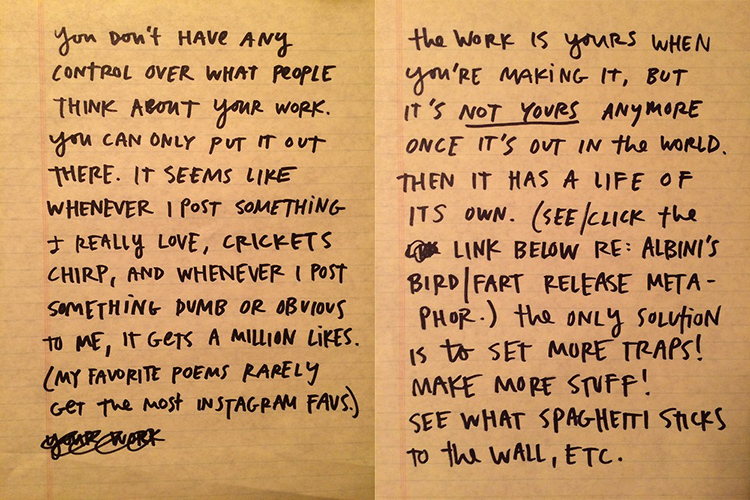 You DON'T HAVE ANY
CONTROL OVER WHAT PEOPLE
THINK ABOUT YOUR WORK.
YOU CAN ONLY PUT IT OUT
THERE. IT SEEMS LIKE
WHENEVER I POST SOMETHING
I REALLY LOVE, CRICKETS
CHIRP, AND WHENEVER I POST
SOMETHING DUMB OR OBVIOUS
TO ME, IT GETS A MILLION LIKES.
(MY FAVORITE POEMS RARELY
GET THE MOST INSTAGRAM FAVS.)
YOUR WORK
the WORK IS YOURS WHEN
YOU'RE MAKING IT, BUT
IT'S NOT YOURS ANYMORE
ONCE IT'S OUT IN the WORLD.
THEN IT HAS A LIFE OF
ITS OWN. (SEE/CLICK the
LINK BELOW RE: ALBINI'S
BIRD/FART RELEASE META-
PHOR.) the ONLY SOLUTION
IS to SET MORE TRAPS!
MAKE MORE STUFF!
SEE WHAT SPAGHETTI STICKS
TO the WALL, ETC.